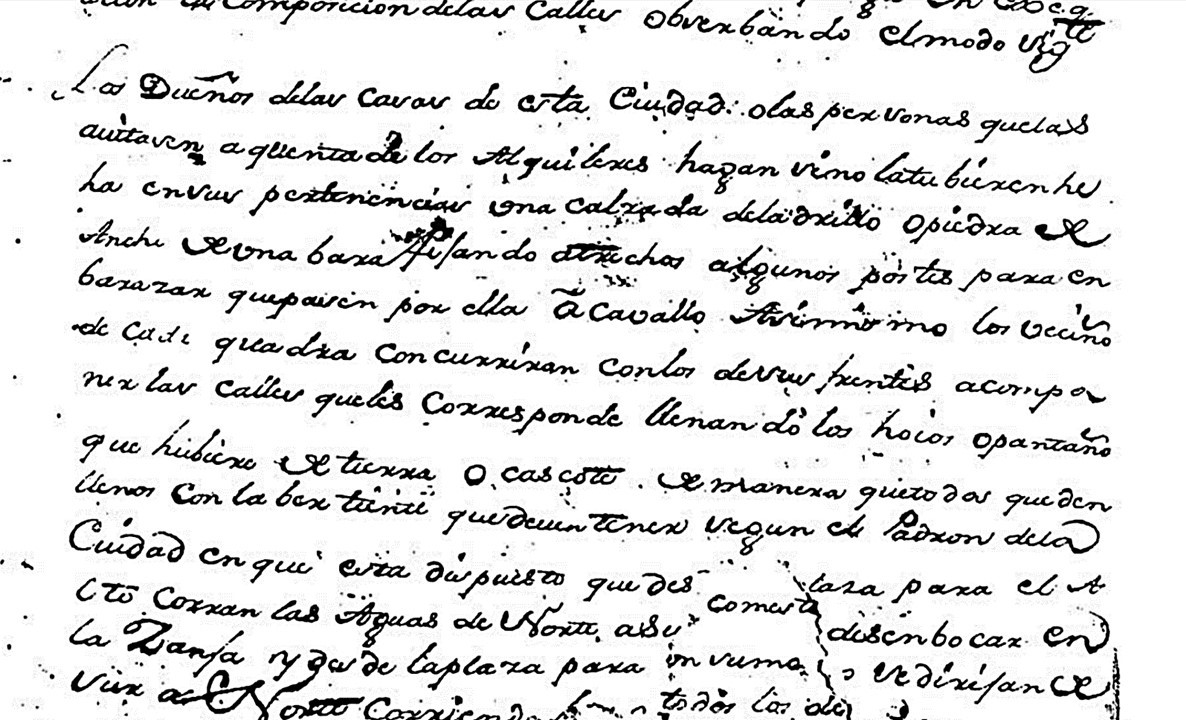 composicion delas Calles Obserbando el modo sig.te
Los Dueños delas Casas de esta Ciudad: olas personas quelas
auitasen a quenta de los Alquileres hagan sino latubieren he
ha ensus pertenencias una calzada deladrillo opiedra de
Ancho de una bara fijando atrechos algunos postes para en
barazar quepasen por ella â Cavallo Asimismo los vecinos
de Cada quadra Concurriran Conlos desus frentes acompo
ner las Calles queles Corresponde llenando los hoios opantanos
que hubiere de tierra o cascote. de manera quetodas queden
llenos Con la bertiente quedeuen tener segun el Padron dela
Cuidad en que esta dispuesto que des laza para el A
lto Corran las Aguas de Norte asu como desenbocar en
la Zanja y desde laplaza para se dirijan de
Sur a Norte todos los